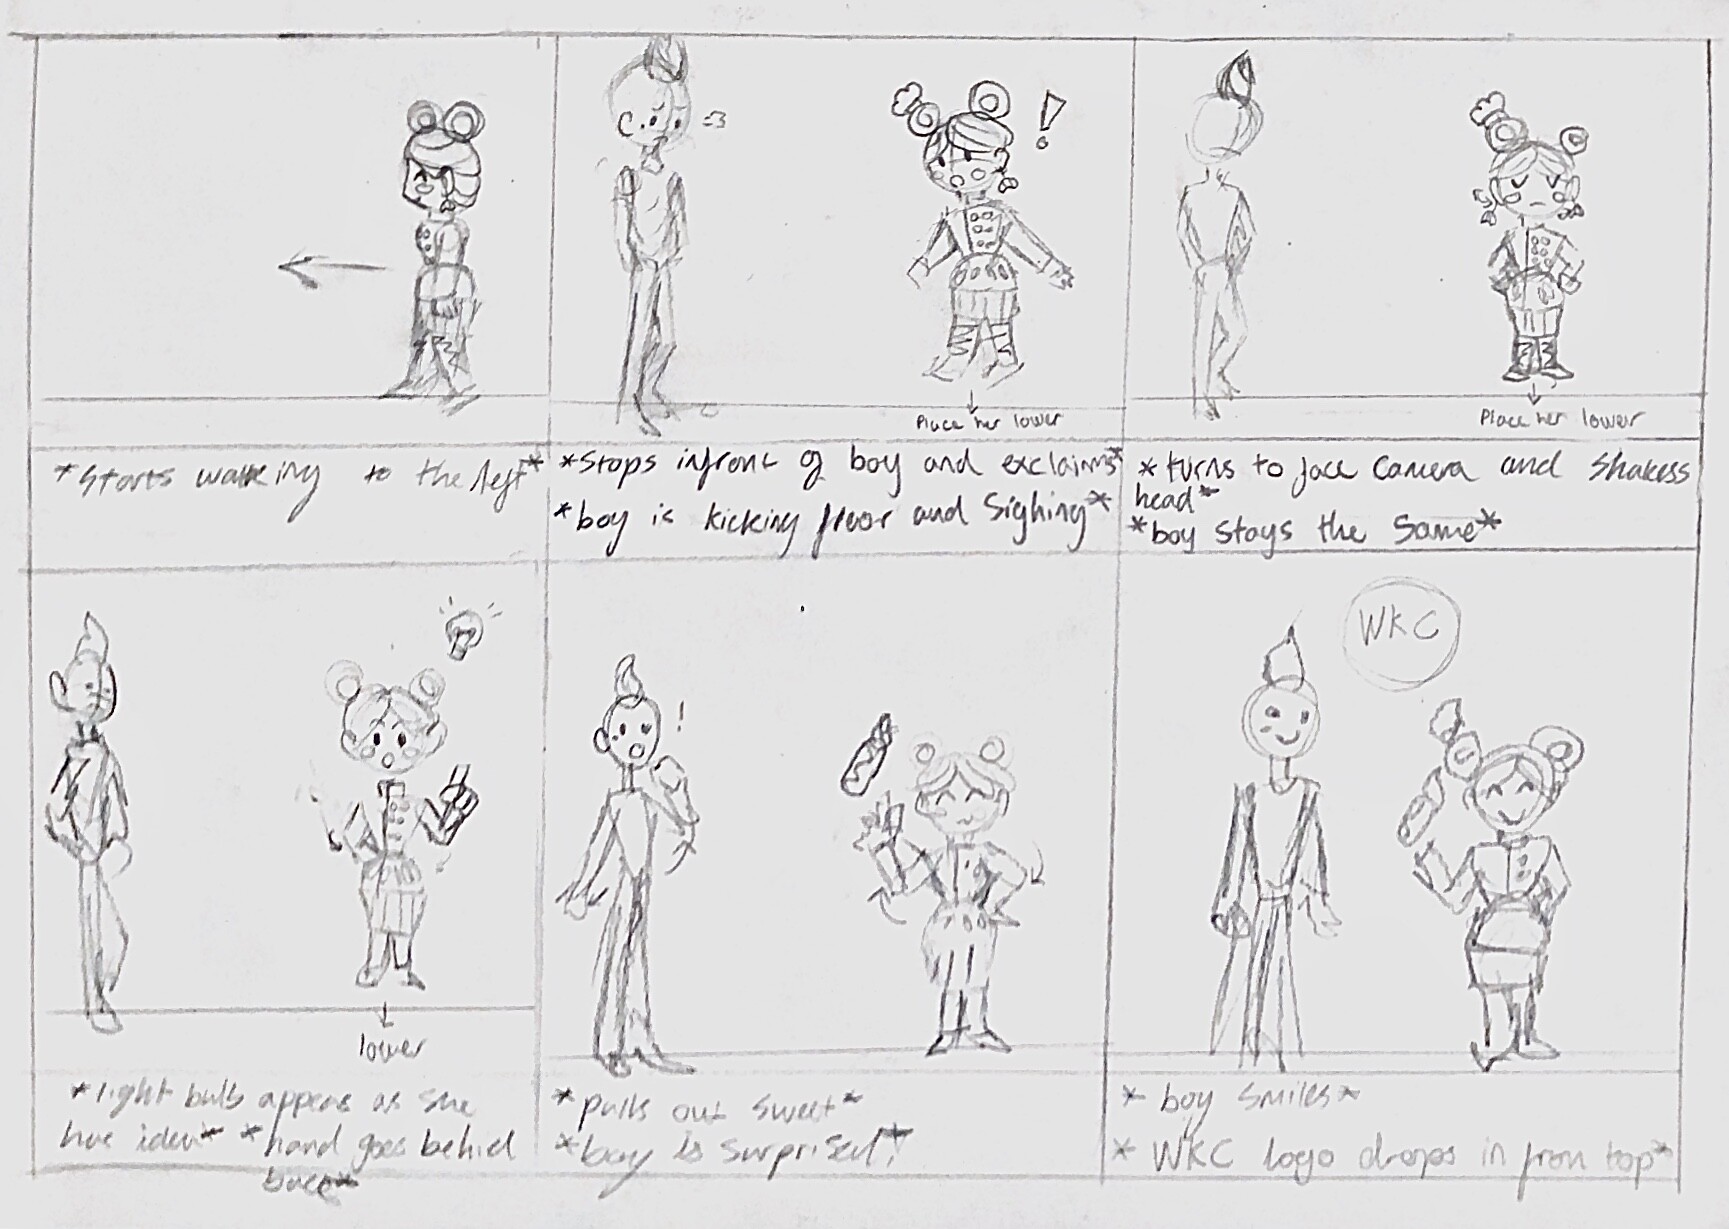 !
Place her lower
Place her lower
*Starts walking to the left*
*Stops infront of boy and exclaims*
*boy is kicking floor and Sighing*
*turns to face camera and Shakess
head*
*boy stays the Same*
lower
*light bulb appears as she
hve idea* *hand goes behind
back*
!
*pulls out sweet*
*boy is surprised!*
WKC
*boy smiles*
*WKC logo drops in from top*